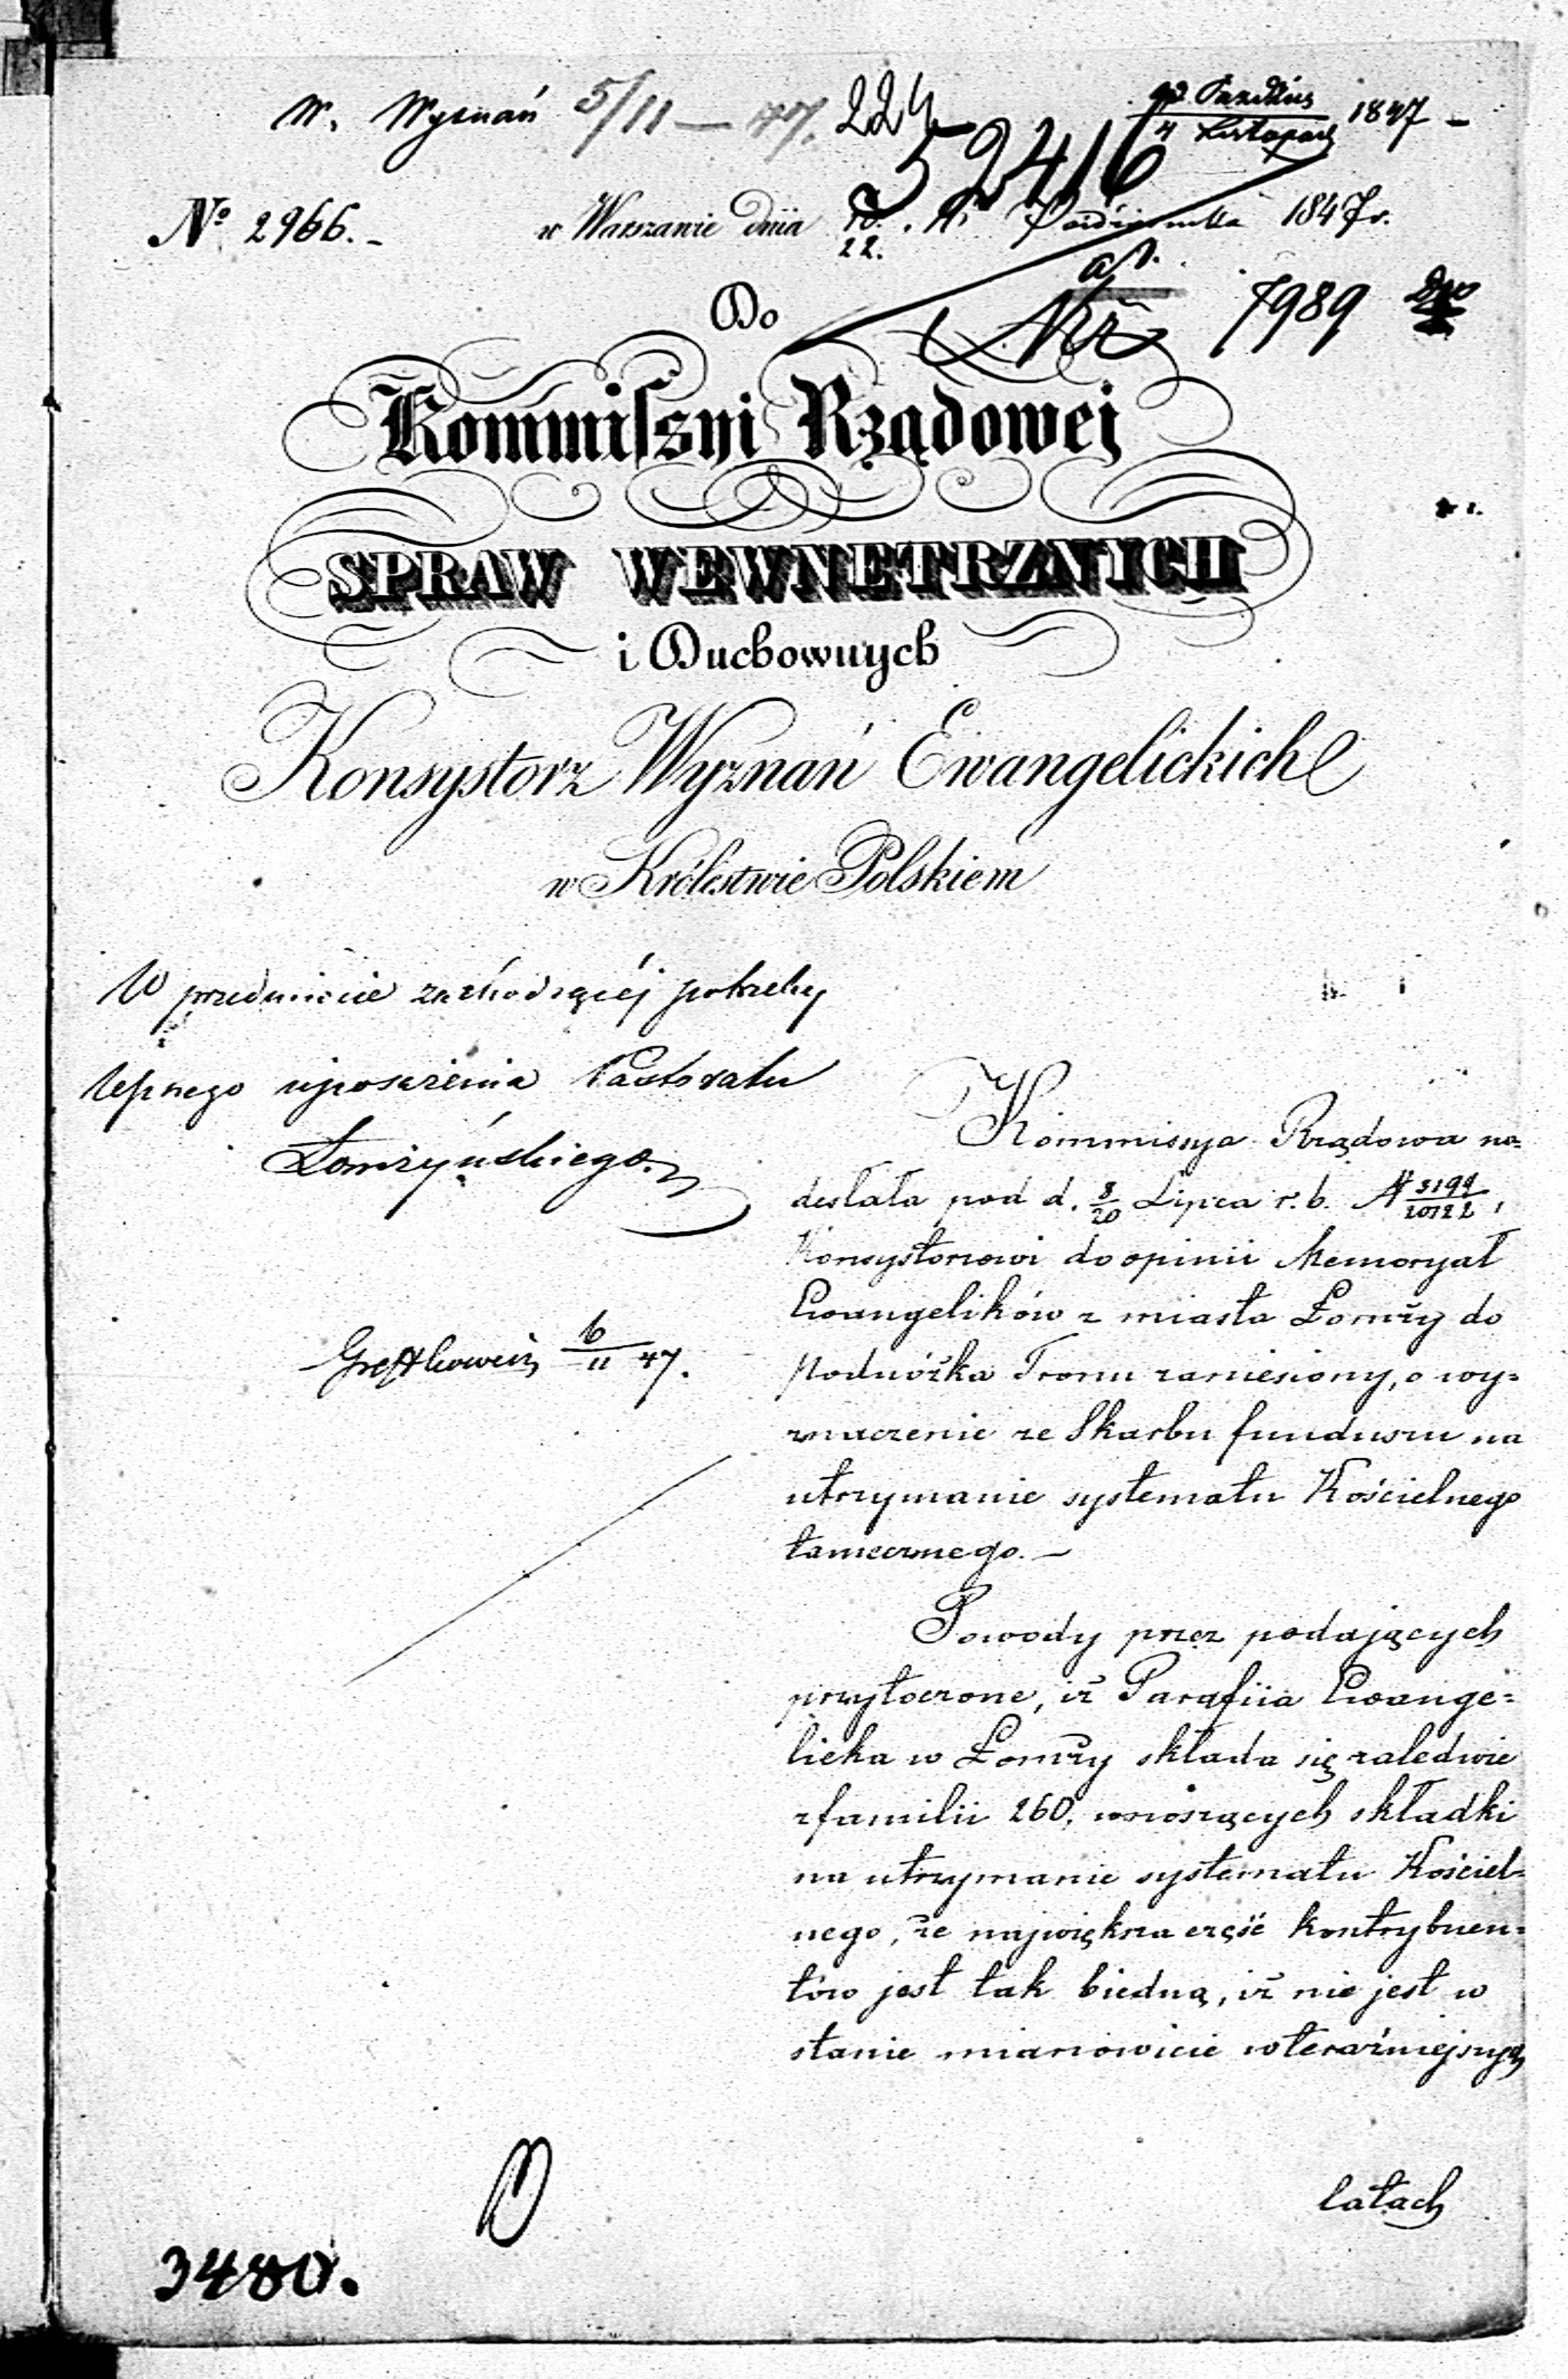 W. Wyznań 5/11 — 47. 224
23 Paźdź. / 4 Listopad 1847 —
52416
No 2966. — w Warszawie dnia 10./22. Października 1847 r.
Do 7989
Kommiſsyi Rządowej
SPRAW WEWNĘTRZNYCH
i Duchownych
Konsystorz Wyznań Ewangelickich
w Królestwie Polskiem
W przedmiocie zachodzącéj potrzeby
lepszego uposażenia Pastoratu
Łomżyńskiego.
6/11 47.
Kommissya Rządowa na=
desłała pod d. 8/20 Lipca r. b. N 3194/20122,
Konsystorzowi do opinii Memoryał
Ewangelików z miasta Łomży do
Podnóżka Tronu zaniesiony, o wy=
znaczenie ze Skarbu funduszu na
utrzymanie systematu Kościelnego
tamecznego. —
Powody przez podających
przytoczone, iż Parafiia Ewange=
licka w Łomży składa się zaledwie
z familii 260. wnoszących składki
na utrzymanie systematu Kościel=
nego, że największa część kontrybuen=
tów jest tak biedną, iż nie jest w
stanie mianowicie w teraźniejszych
latach
3480.